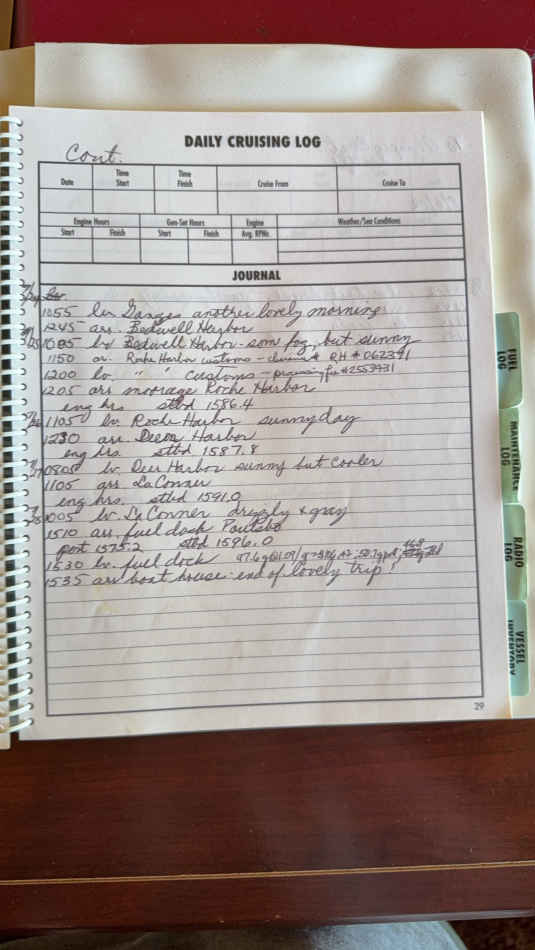 DAILY CRUISING LOG
Cont.
Date
Time Start
Time Finish
Cruise From
Cruise To
Engine Hours
Gen-Set Hours
Engine
Weather/Sea Conditions
Start
Finish
Start
Finish
Avg. RPMs
JOURNAL
1055 lv. Ganges another lovely morning
1245 arr. Bedwell Harbor
lv. Bedwell Harbor - som fog, but sunny
1150 ar. Roche Harbor customs - # RH # 062391
1200 lv. " " customs - #2553931
1205 arr moorage Roche Harbor
eng hrs. stbd 1586.4
1105 lv. Roche Harbor sunny day
1230 arr. Deer Harbor
eng hrs. stbd 1587.8
0805 lv. Deer Harbor sunny but cooler
1105 arr. La Conner
eng hrs. stbd 1591.0
1005 lv. La Conner drizzly & gray
1510 arr. fuel dock Poulsbo
port 1575.2 stbd 1596.0
1530 lv. fuel dock
1535 arr boat house - end of lovely trip!
29
FUEL LOG
MAINTENANCE LOG
RADIO LOG
VESSEL INVENTORY